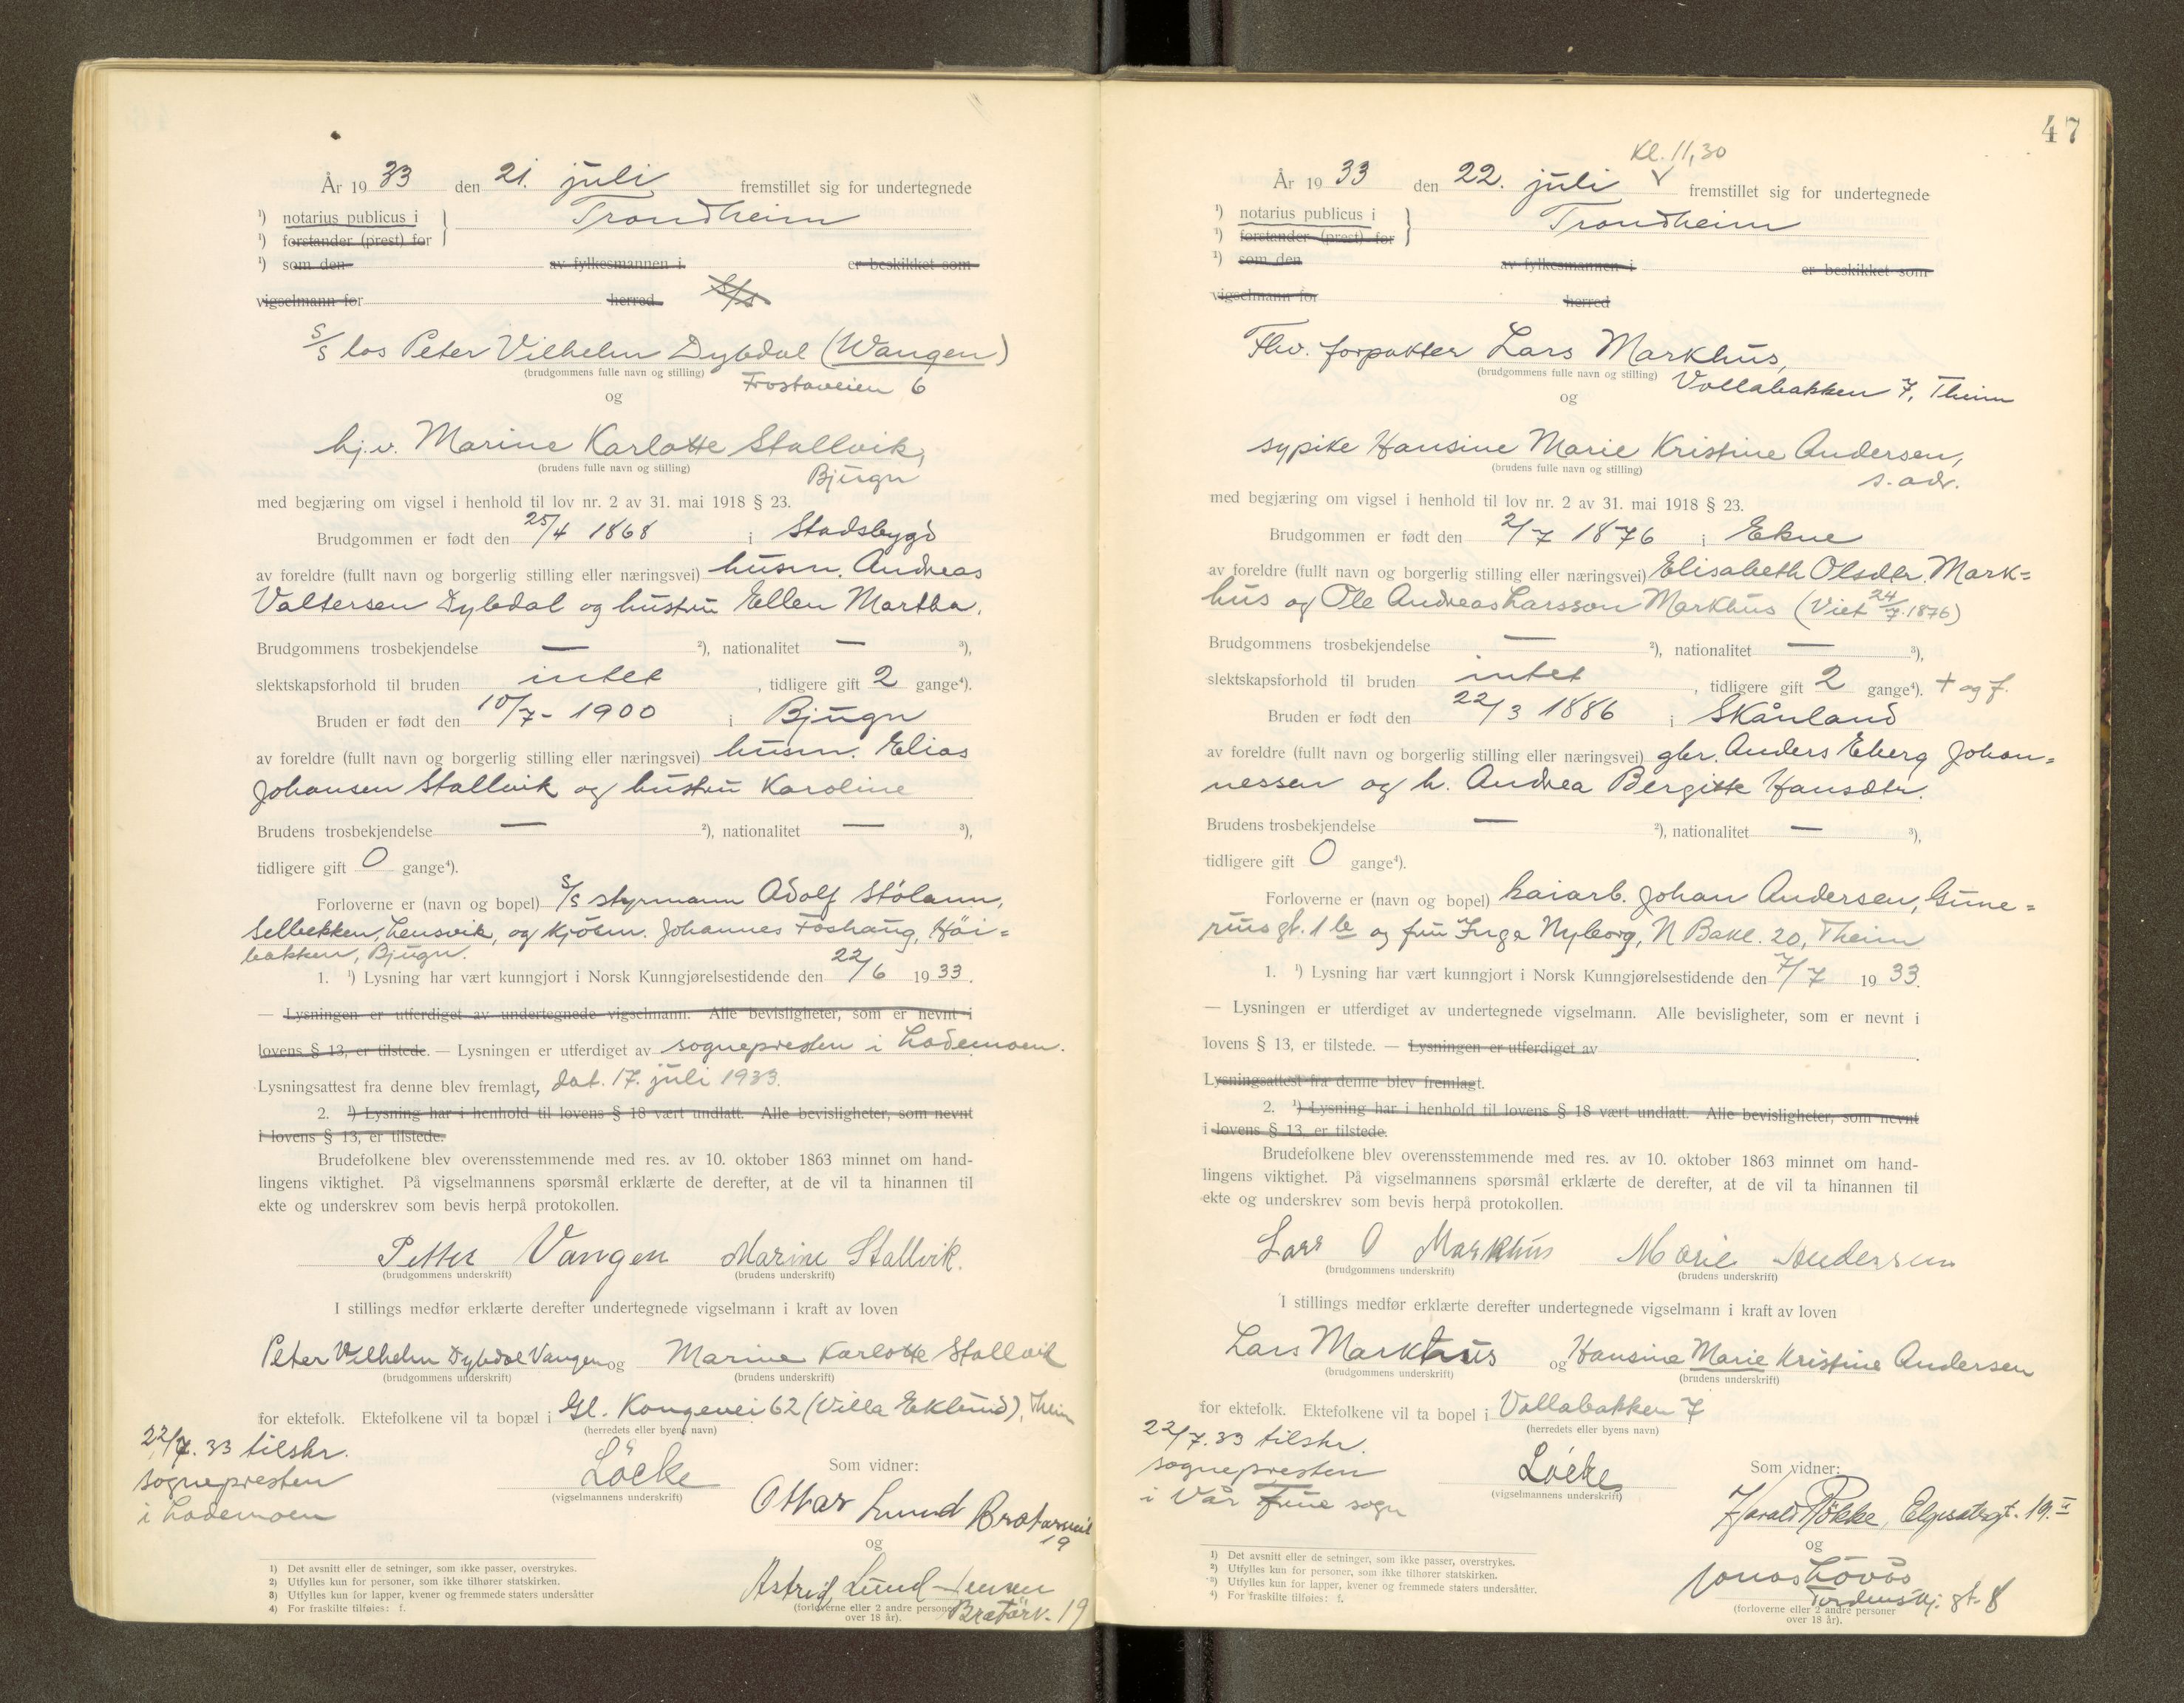 År 1933 den 21. juli fremstillet sig for undertegnede
¹) notarius publicus i } Trondheim
¹) forstander (prest) for
¹) som den av fylkesmannen i er beskikket som
vigselmann for herred S/s
S/S los Peter Vilhelm Dybdal (Wangen)
(brudgommens fulle navn og stilling) Frostaveien 6
og
hj.v. Marine Karlotte Stallvik,
(brudens fulle navn og stilling) Bjugn
med begjæring om vigsel i henhold til lov nr. 2 av 31. mai 1918 § 23.
Brudgommen er født den 25/4 1868 i Stadsbygd
av foreldre (fullt navn og borgerlig stilling eller næringsvei) husm. Andreas
Valtersen Dybdal og hustru Ellen Martha.
Brudgommens trosbekjendelse — ²), nationalitet — ³),
slektskapsforhold til bruden intet , tidligere gift 2 gange⁴).
Bruden er født den 10/7 - 1900 i Bjugn
av foreldre (fullt navn og borgerlig stilling eller næringsvei) husm. Elias
Johansen Stallvik og hustru Karoline
Brudens trosbekjendelse — ²), nationalitet — ³),
tidligere gift 0 gange⁴).
Forloverne er (navn og bopel) S/S styrmann Adolf Stølann,
Selbekken, Lensvik, og kjøbm. Johannes Foshaug, Høi=
bakken, Bjugn.
1. ¹) Lysning har vært kunngjort i Norsk Kunngjørelsestidende den 22/6 1933.
— Lysningen er utferdiget av undertegnede vigselmann. Alle bevisligheter, som er nevnt i
lovens § 13, er tilstede. — Lysningen er utferdiget av sognepresten i Lademoen.
Lysningsattest fra denne blev fremlagt, dat. 17. juli 1933.
2. ¹) Lysning har i henhold til lovens § 18 vært undlatt. Alle bevisligheter, som nevnt
i lovens § 13, er tilstede.
Brudefolkene blev overensstemmende med res. av 10. oktober 1863 minnet om hand-
lingens viktighet. På vigselmannens spørsmål erklærte de derefter, at de vil ta hinannen til
ekte og underskrev som bevis herpå protokollen.
Petter Vangen Marine Stallvik.
(brudgommens underskrift) (brudens underskrift)
I stillings medfør erklærte derefter undertegnede vigselmann i kraft av loven
Peter Vilhelm Dybdal Vangen og Marine Karlotte Stallvik
(brudgommens underskrift) (brudens underskrift)
for ektefolk. Ektefolkene vil ta bopæl i Gl. Kongevei 62 (Villa Eklund), Theim
(herredets eller byens navn)
22/7. 33 tilskr.
sognepresten
i Lademoen
Løcke
(vigselmannens underskrift)
Som vidner:
Ottar Lund
19
og
Astrid Lund-Jensen
(forloverne eller 2 andre personer Bratørv. 19
over 18 år).
1) Det avsnitt eller de setninger, som ikke passer, overstrykes.
2) Utfylles kun for personer, som ikke tilhører statskirken.
3) Utfylles kun for lapper, kvener og fremmede staters undersåtter
4) For fraskilte tilføies: f.
47
Kl. 11,30
År 1933 den 22. juli V fremstillet sig for undertegnede
¹) notarius publicus i } Trondheim
¹) forstander (prest) for
¹) som den av fylkesmannen i er beskikket som
vigselmann for herred
Fhv. forpakter Lars Markhus,
(brudgommens fulle navn og stilling) Vollabakken 7, Theim
og
sypike Hansine Marie Kristine Andersen,
(brudens fulle navn og stilling) s. adr.
med begjæring om vigsel i henhold til lov nr. 2 av 31. mai 1918 § 23.
Brudgommen er født den 2/7 1876 i Ekne
av foreldre (fullt navn og borgerlig stilling eller næringsvei) Elisabeth Olsdtr. Mark=
hus og Ole Andreas Larsson Markhus (Viet 24/7 1876)
Brudgommens trosbekjendelse — ²), nationalitet — ³),
slektskapsforhold til bruden intet , tidligere gift 2 gange⁴). + og f.
Bruden er født den 22/3 1886 i Skånland
av foreldre (fullt navn og borgerlig stilling eller næringsvei) gbr. Anders Eberg Johan=
nessen og h. Andrea Bergitte Hansdtr.
Brudens trosbekjendelse — ²), nationalitet — ³),
tidligere gift 0 gange⁴).
Forloverne er (navn og bopel) kaiarb. Johan Andersen, Gune=
rius gt. 1 b og fru Inga Nyborg, N Bakl. 20, Theim
1. ¹) Lysning har vært kunngjort i Norsk Kunngjørelsestidende den 7/7 1933.
— Lysningen er utferdiget av undertegnede vigselmann. Alle bevisligheter, som er nevnt i
lovens § 13, er tilstede. — Lysningen er utferdiget av
Lysningsattest fra denne blev fremlagt.
2. ¹) Lysning har i henhold til lovens § 18 vært undlatt. Alle bevisligheter, som nevnt
i lovens § 13, er tilstede.
Brudefolkene blev overensstemmende med res. av 10. oktober 1863 minnet om hand-
lingens viktighet. På vigselmannens spørsmål erklærte de derefter, at de vil ta hinannen til
ekte og underskrev som bevis herpå protokollen.
Lars O Markhus Marie Andersen
(brudgommens underskrift) (brudens underskrift)
I stillings medfør erklærte derefter undertegnede vigselmann i kraft av loven
Lars Markhus og Hansine Marie Kristine Andersen
(brudgommens underskrift) (brudens underskrift)
for ektefolk. Ektefolkene vil ta bopel i Vollabakken 7
(herredets eller byens navn)
22/7. 33 tilskr.
sognepresten
i Vår Frue sogn
Løcke
(vigselmannens underskrift)
Som vidner:
Harald Røkke, Elgesetergt. 19.II
og
Jonas Løvås
Tordenskj. gt. 8
(forloverne eller 2 andre personer
over 18 år).
1) Det avsnitt eller de setninger, som ikke passer, overstrykes.
2) Utfylles kun for personer, som ikke tilhører statskirken.
3) Utfylles kun for lapper, kvener og fremmede staters undersåtter.
4) For fraskilte tilføies: f.